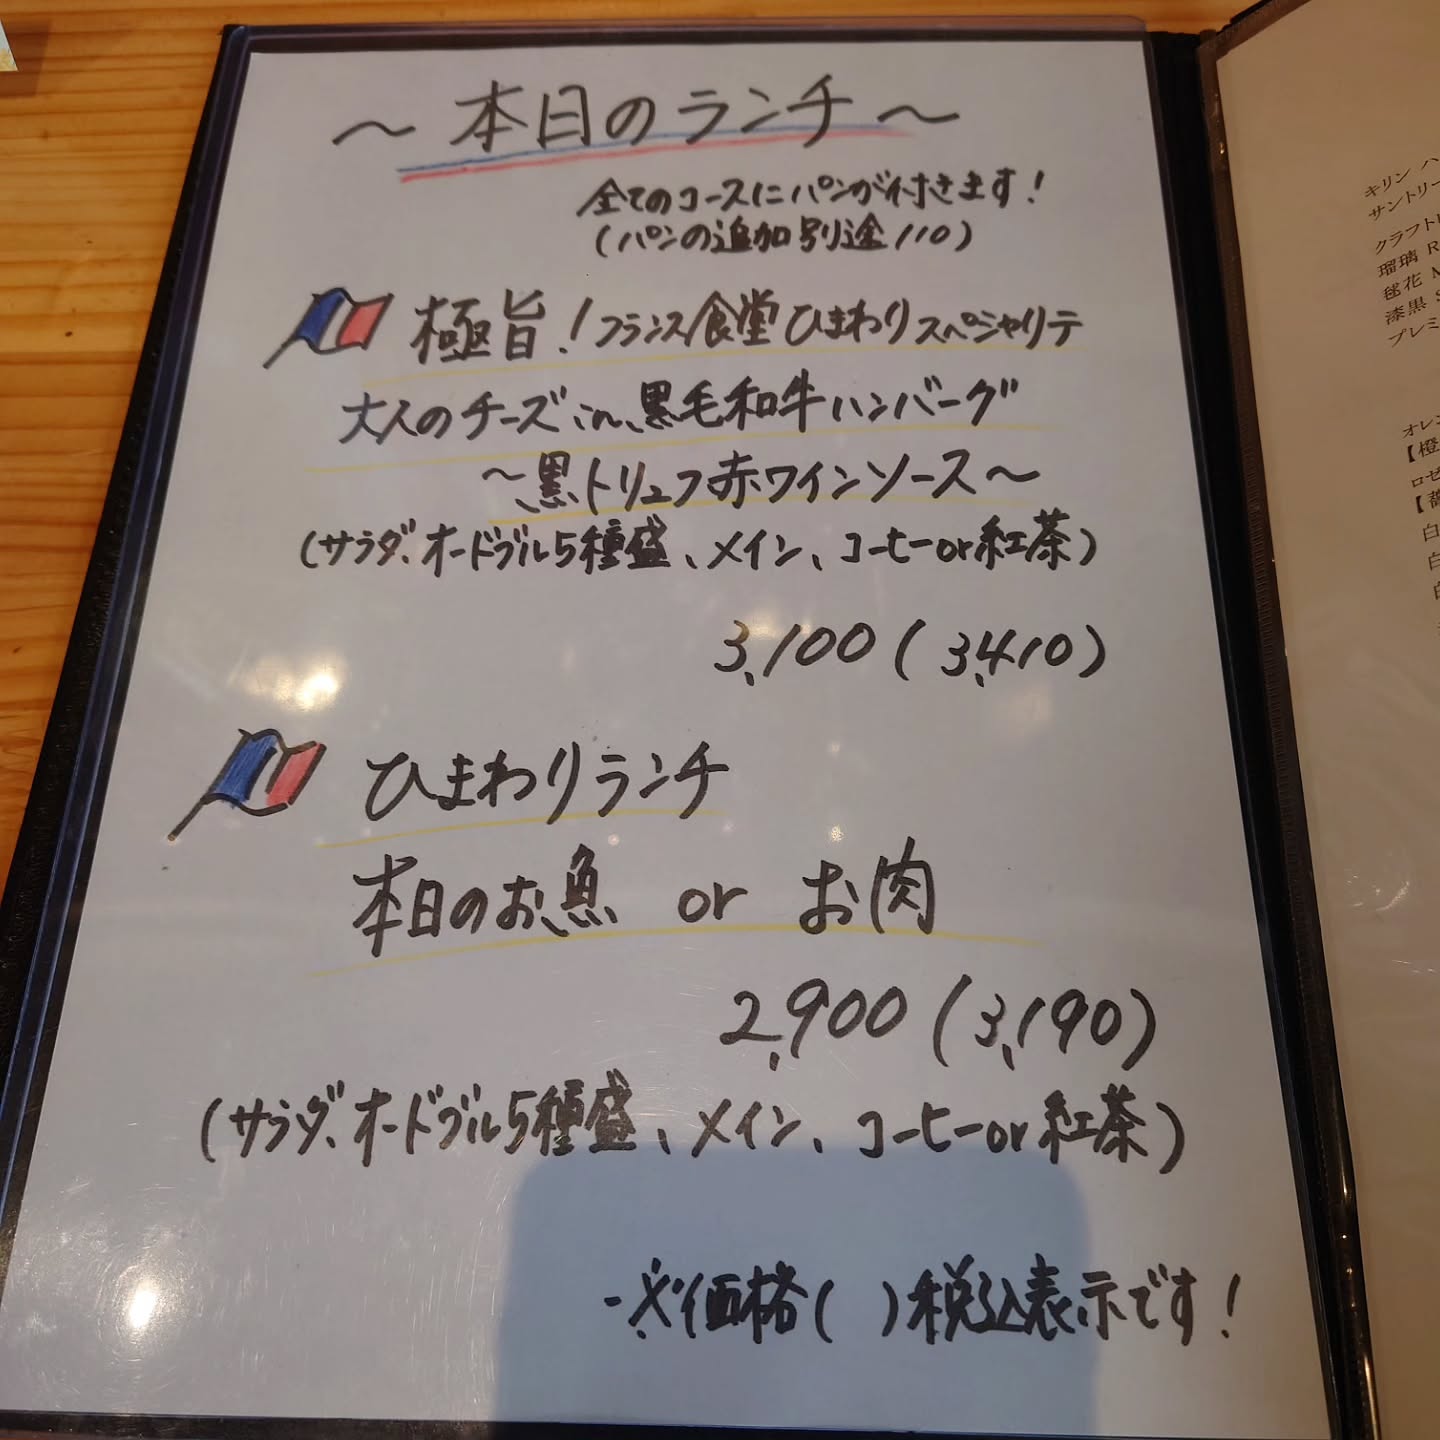 ～本日のランチ～
全てのコースにパンが付きます！
(パンの追加別途110)
極旨！フランス食堂ひまわりスペシャリテ
大人のチーズin黒毛和牛ハンバーグ
～黒トリュフ赤ワインソース～
(サラダ、オードブル5種盛、メイン、コーヒーor紅茶)
3,100(3,410)
ひまわりランチ
本日のお魚 or お肉
2,900(3,190)
(サラダ、オードブル5種盛、メイン、コーヒーor紅茶)
※価格( )税込表示です！
キリン ハ
サントリー
クラフト
瑠璃 R
毬花
漆黒
プレミ
オレン
【橙
ロゼ
【薔
白
白